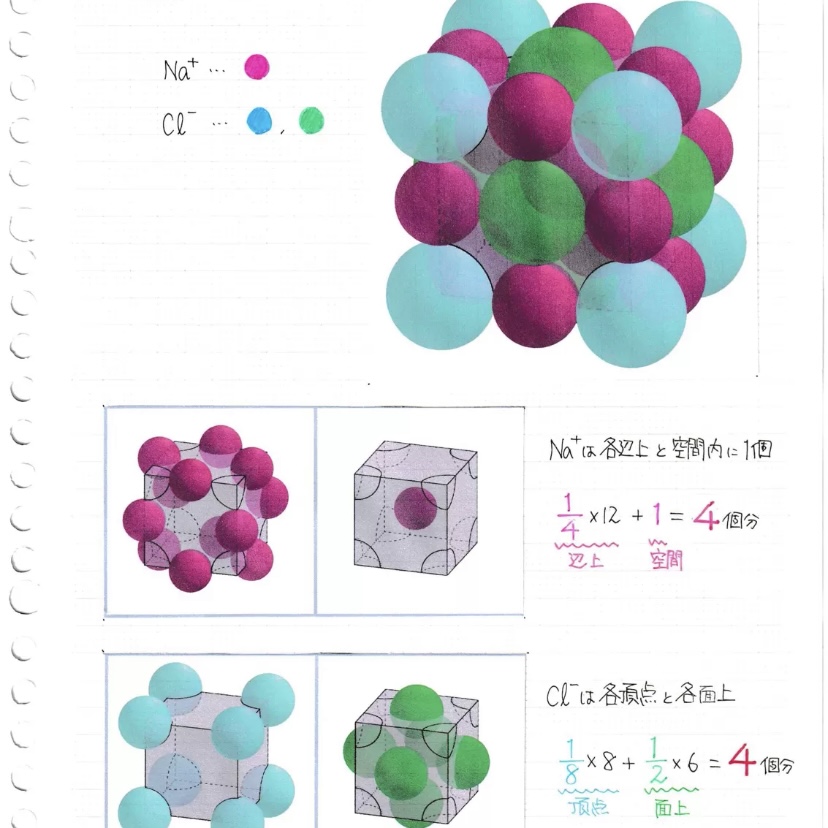 Na⁺ …
Cl⁻ … , 
Na⁺は各辺上と空間内に1個
1/4 ×12 + 1 = 4個分
辺上 空間
Cl⁻は各頂点と各面上
1/8 ×8 + 1/2 ×6 = 4個分
頂点 面上